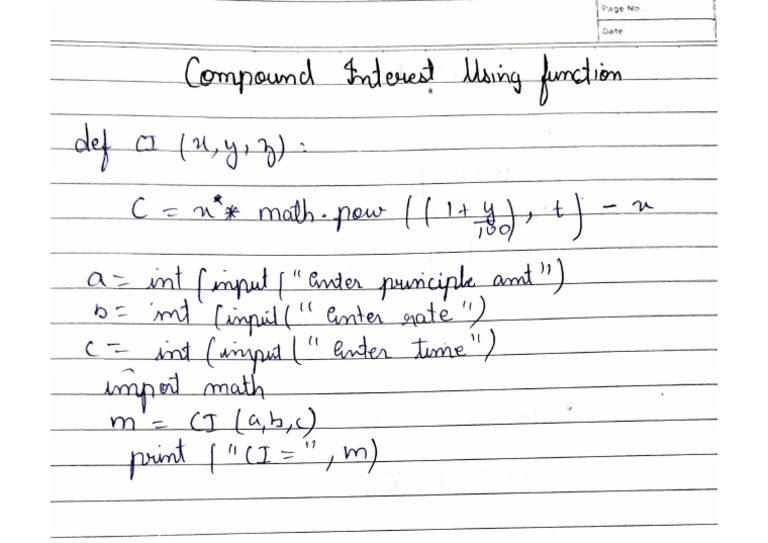 Page No.
Date
Compound Interest Using function
def CI (x, y, z) :
C = x ** math.pow ((1 + y/100), t) - x
a = int (input ("Enter principle amt")
b = int (input (" Enter rate")
c = int (input (" Enter time")
import math
m = CI (a, b, c)
print ("CI = ", m)